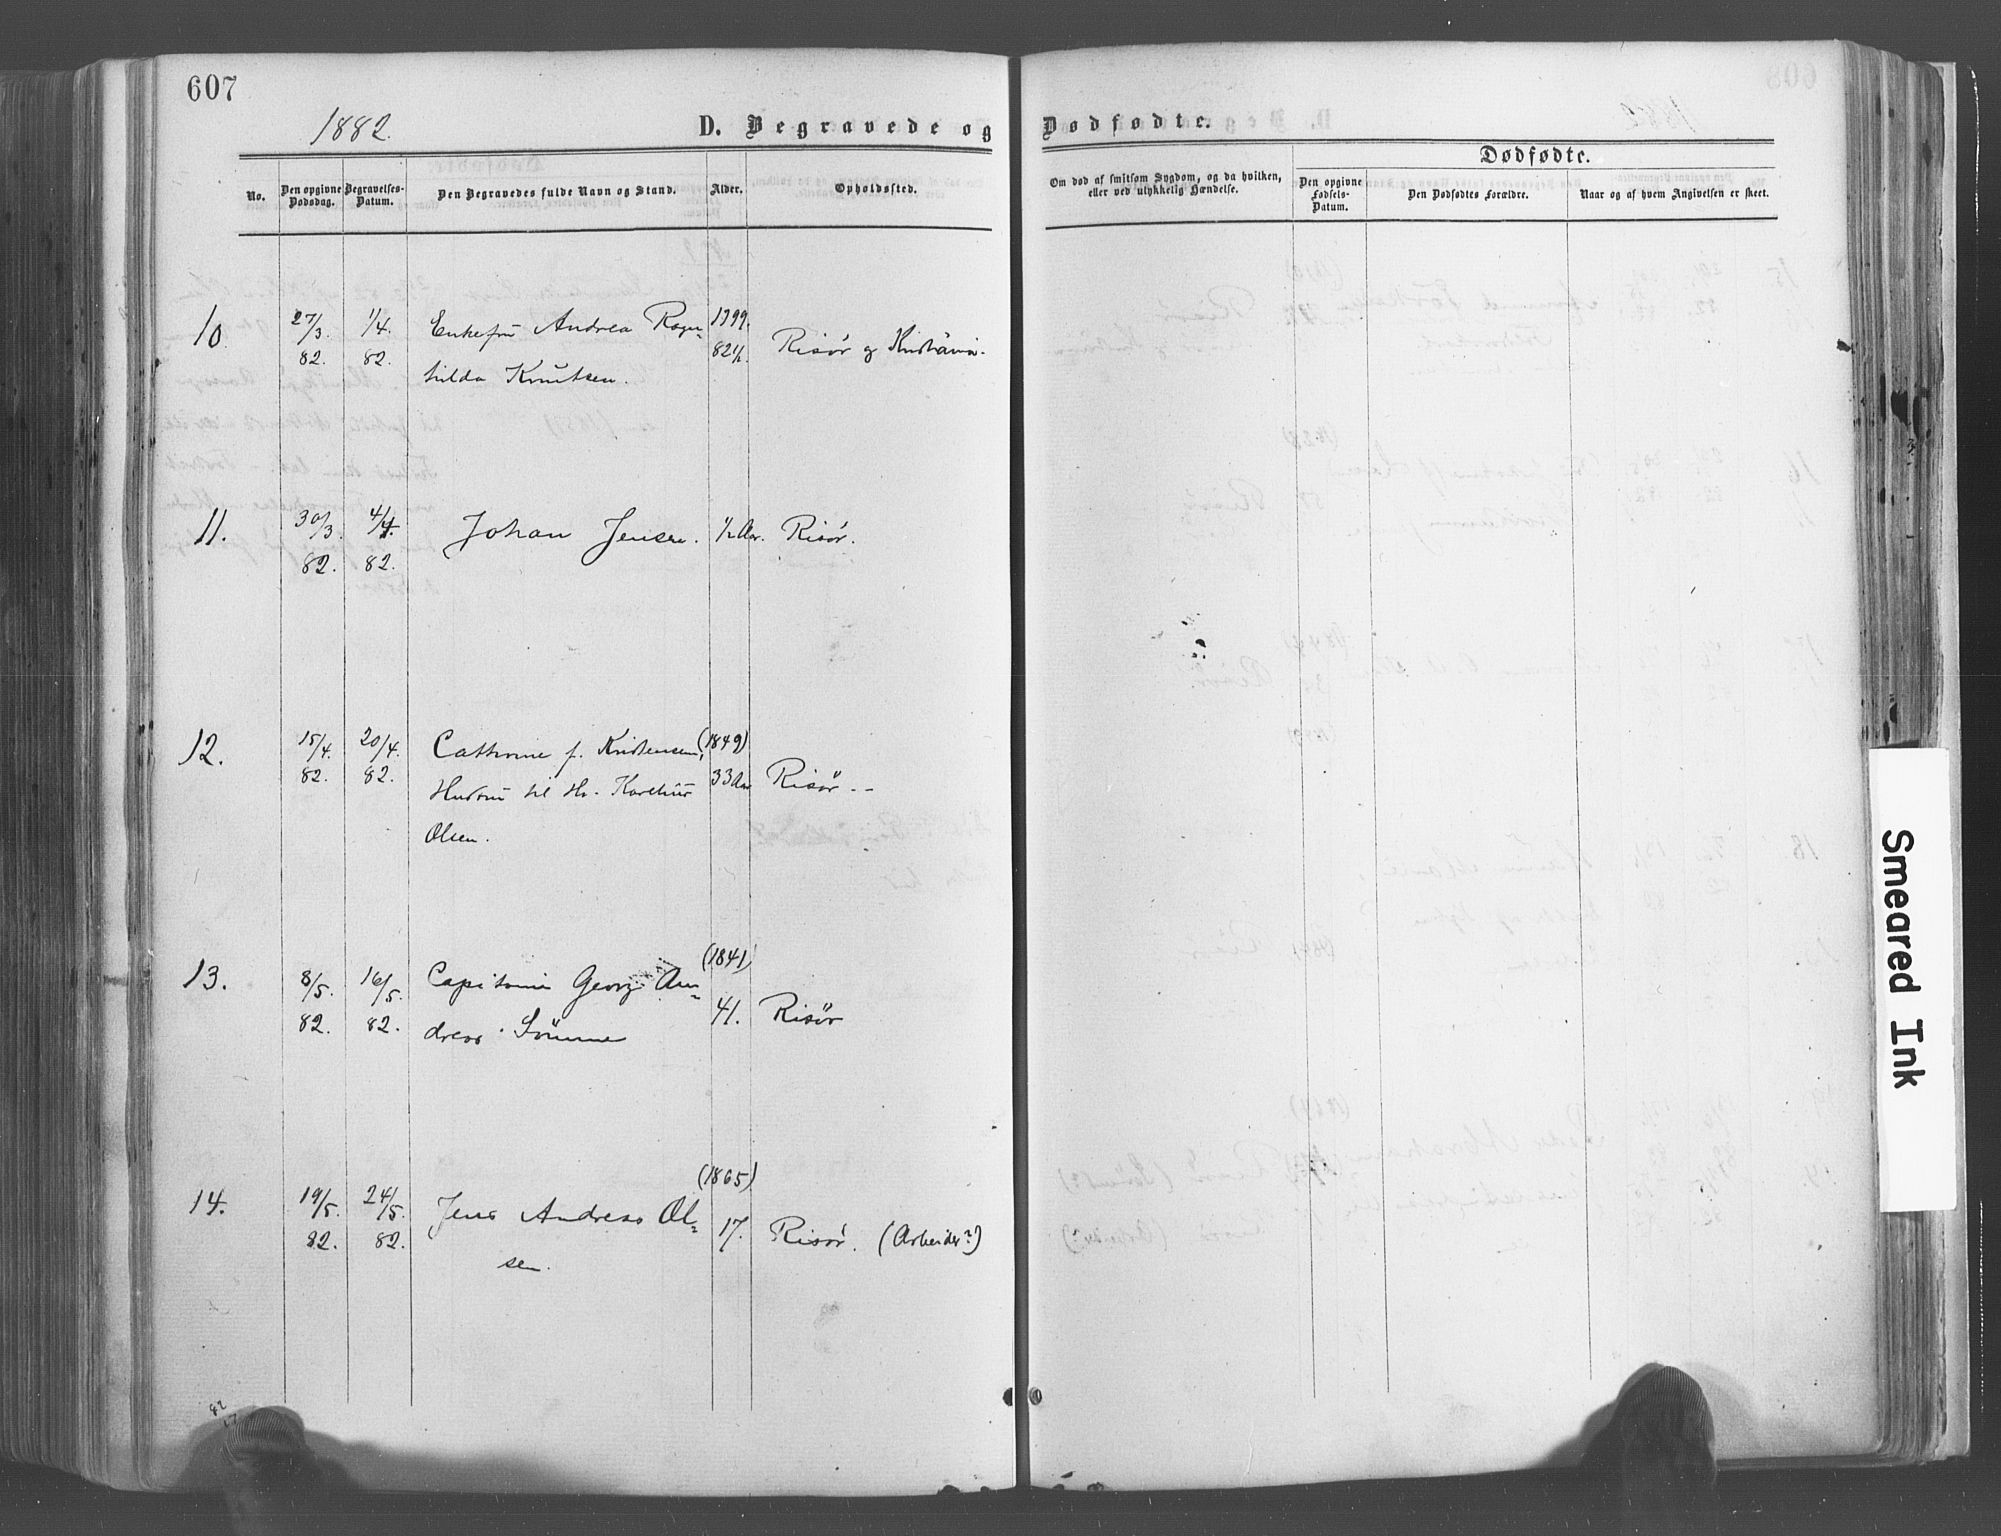 607
1882.
D. Begravede og Dødfødte.
Dødfødte.
No.
Den opgivne Dødsdag.
Begravelses-Datum.
Den Begravedes fulde Navn og Stand.
Alder.
Opholdssted.
Om død af smitsom Sygdom, og da hvilken,
eller ved ulykkelig Hændelse.
Den opgivne Fødsels-Datum.
Den Dødfødtes Forældre.
Naar og af hvem Angivelsen er skeet.
10. 27/3. 1/4. Enkefru Andrea Ragn= 1799.
82. 82. hilda Knutsen. 82½ Risør og Kristiania.
11. 30/3. 4/4. Johan Jensen. ½ Aar. Risør.
82. 82.
12. 15/4. 20/4. Cathrine f. Kristensen, (1849)
82. 82. Hustru til Hr. 33 Aar Risør --
Olsen.
13. 8/5. 16/5. Georg An= (1841)
82. 82. dreas Sömme 41. Risør
14. 19/5. 24/5. Jens Andreas Ol= (1865)
82. 82. sen. 17. Risør. (Arbeider?)
Smeared Ink